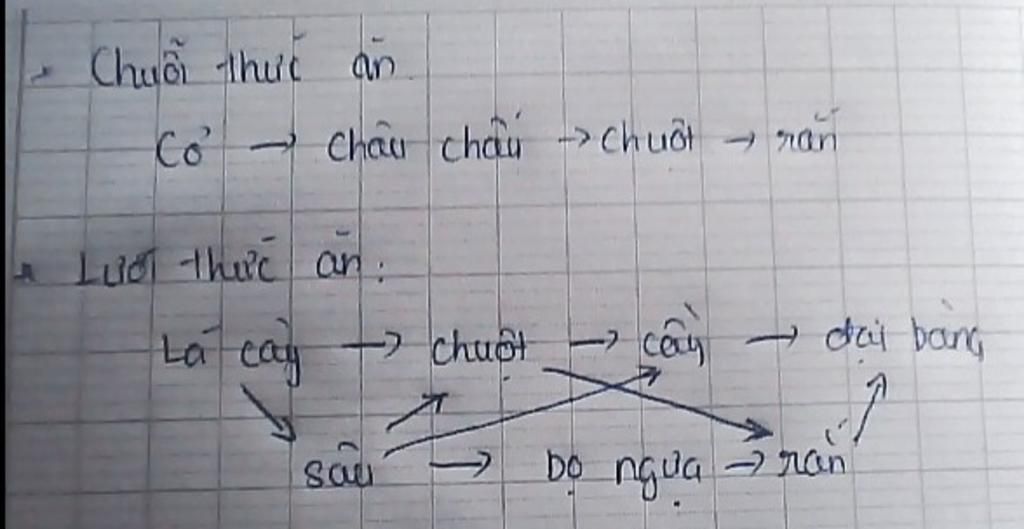 - Chuỗi thức ăn
Cỏ → châu chấu → chuột → rắn
- Lưới thức ăn:
Lá cây → chuột → cầy → đại bàng
sâu → bọ ngựa → rắn